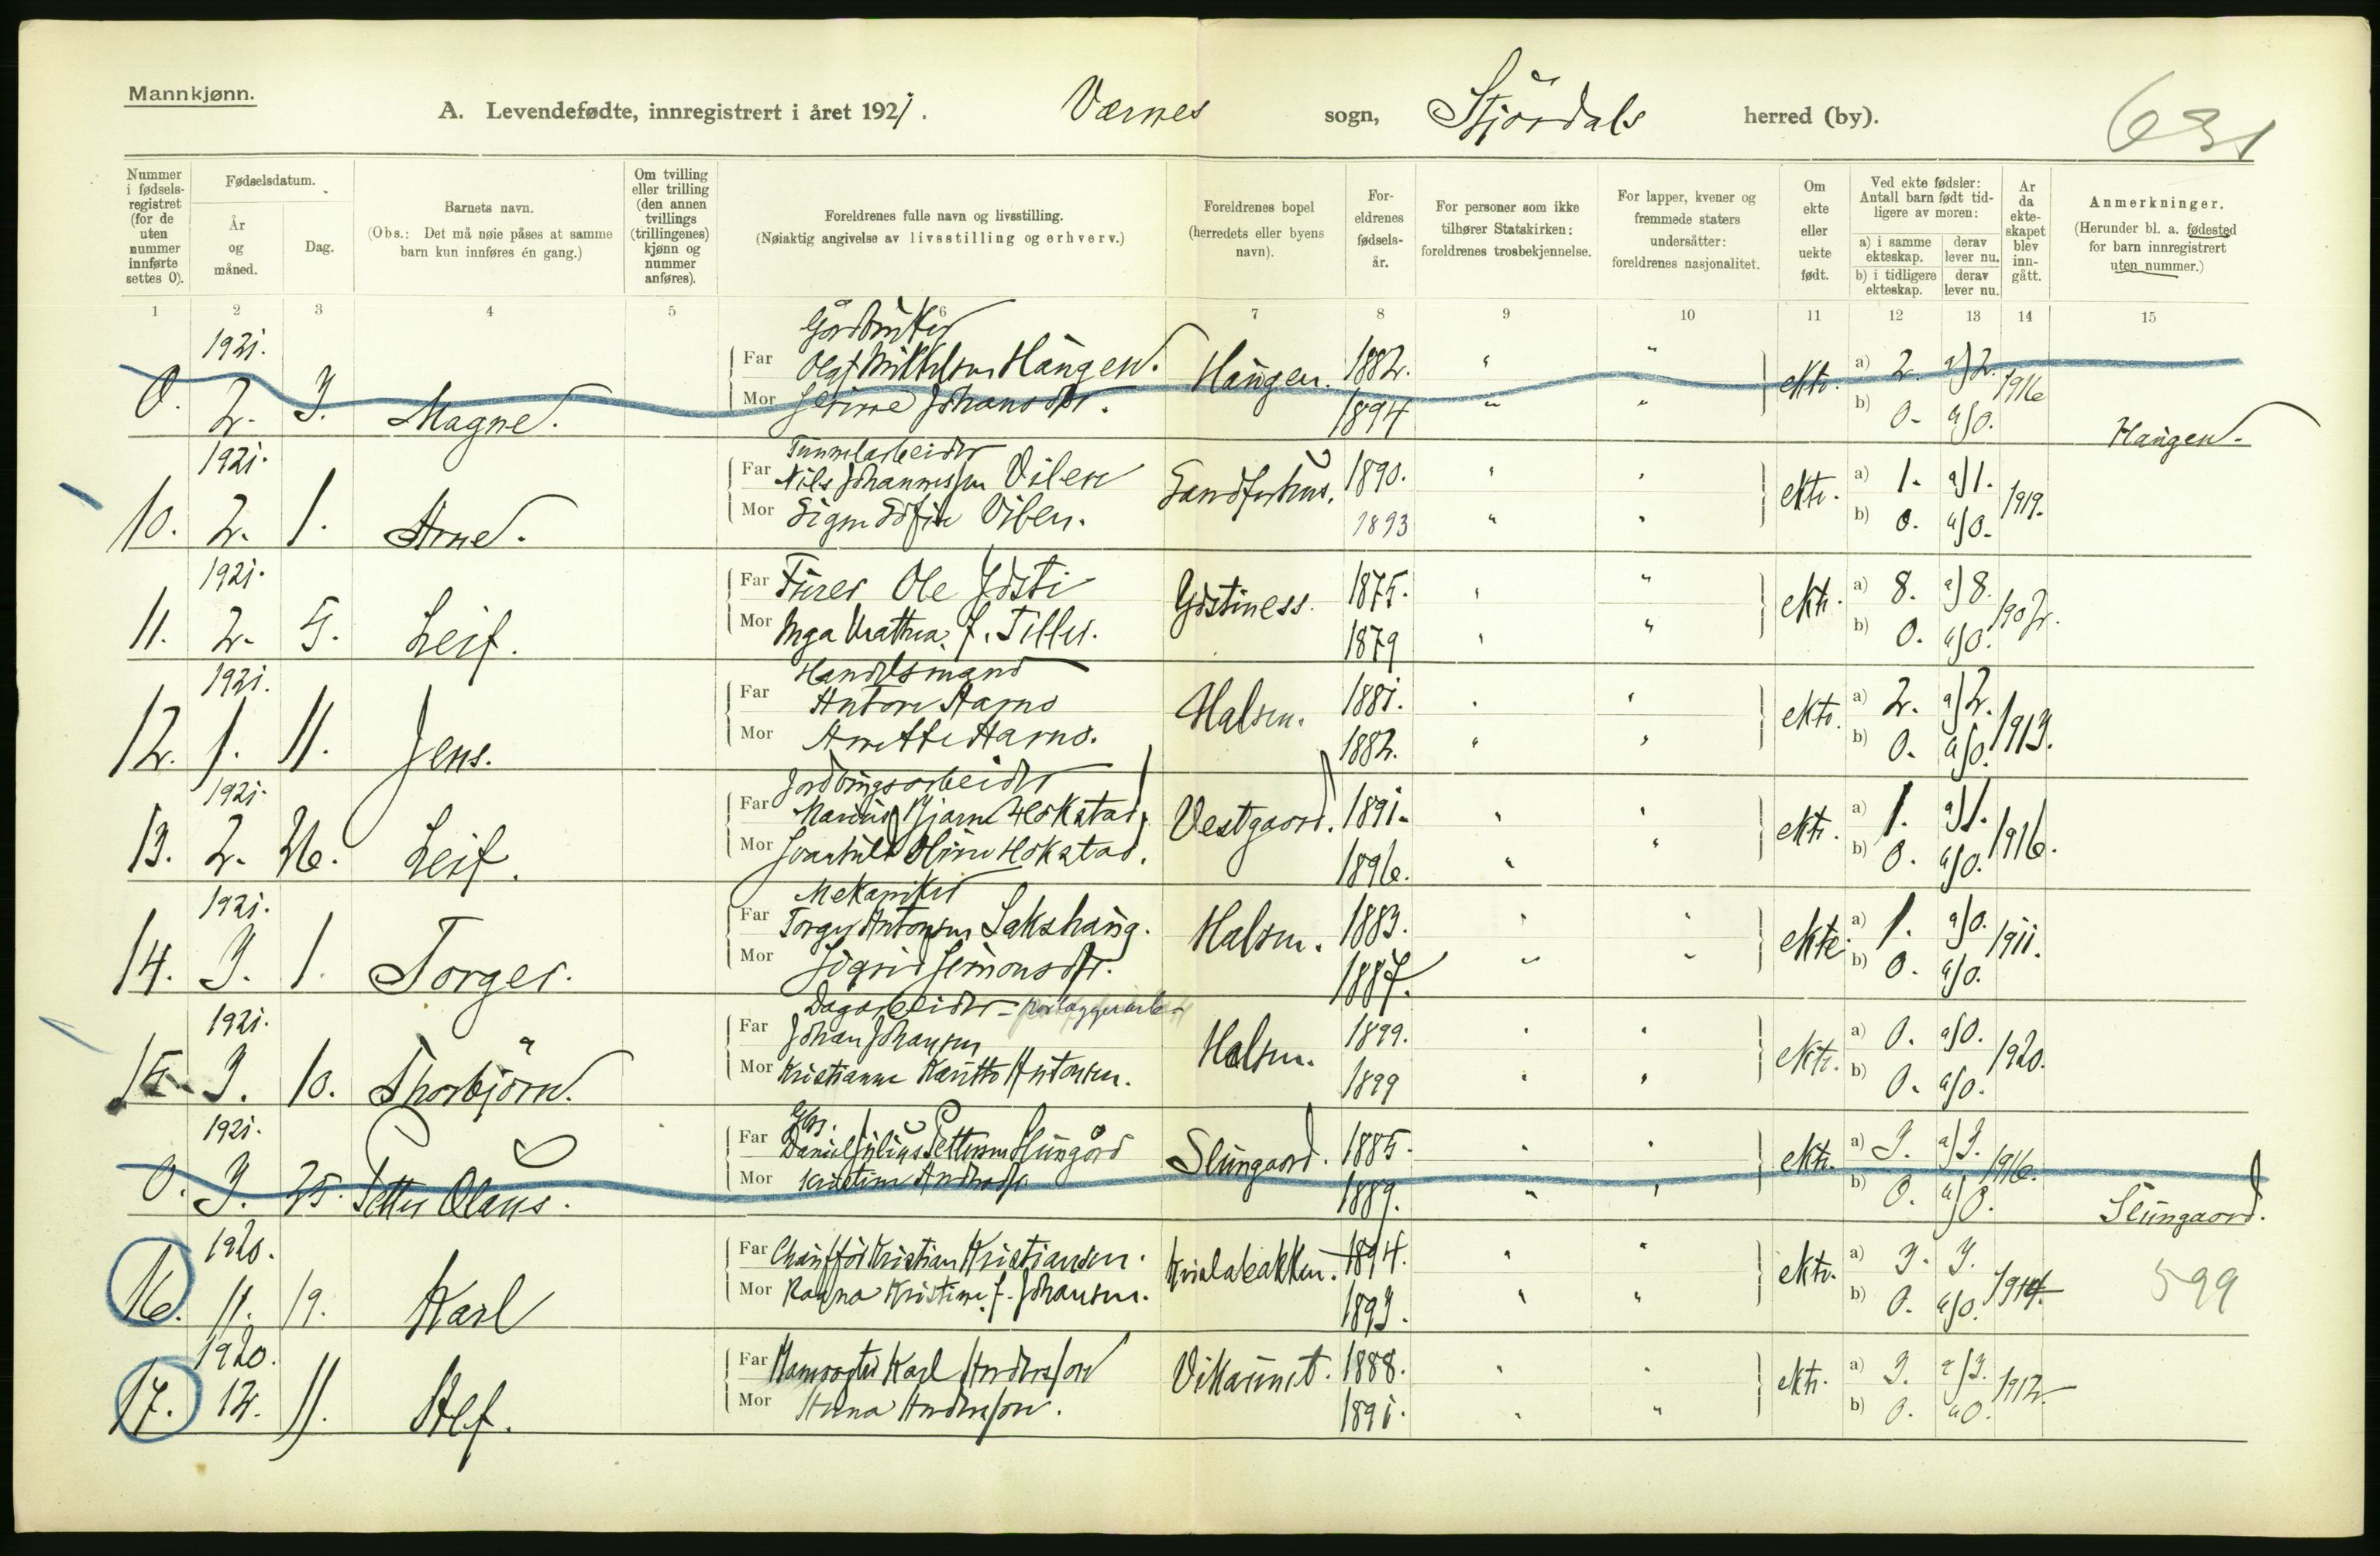 Mannkjønn.
A. Levendefødte, innregistrert i året 1921. Værnes sogn, Stjördals herred (by). 631
Nummer i fødselsregistret (for de uten nummer innførte settes 0).
Fødselsdatum.
År og måned.
Dag.
Barnets navn.
(Obs.: Det må nøie påses at samme barn kun innføres én gang.)
Om tvilling eller trilling (den annen tvillings (trillingenes) kjønn og nummer anføres).
Foreldrenes fulle navn og livsstilling.
(Nøiaktig angivelse av livsstilling og erhverv.)
Foreldrenes bopel (herredets eller byens navn).
Foreldrenes fødselsår.
For personer som ikke tilhører Statskirken: foreldrenes trosbekjennelse.
For lapper, kvener og fremmede staters undersåtter: foreldrenes nasjonalitet.
Om ekte eller uekte født.
Ved ekte fødsler: Antall barn født tidligere av moren:
a) i samme ekteskap. derav lever nu.
b) i tidligere ekteskap. derav lever nu.
År da ekteskapet blev inngått.
Anmerkninger.
(Herunder bl. a. fødested for barn innregistrert uten nummer.)
1 2 3 4 5 6 7 8 9 10 11 12 13 14 15
1921. Gårdbruker
Far Olaf Haugen. Haugen. 1882. " " ekte. a) 2. a) 2. 1916
0. 2. 3. Magne. Mor Johansdtr. 1894 " " b) 0. a) 0. Haugen.
1921. Tunnelarbeider
Far Nils Johannessen Viben 1890. " " ekte. a) 1. a) 1. 1919.
10. 2. 1. Arne. Mor Viben. 1893 " " b) 0. a) 0.
1921. Far Ole Gjösti 1875. " " ekte. a) 8. a) 8. 1902.
11. 2. 5. Leif. Mor Inga f. Tiller. 1879 " " b) 0. a) 0.
1921. Handelsmand
Far Anton Aarnes Halsen. 1881. " " ekte. a) 2. a) 2. 1913.
12. 1. 11. Jens. Mor Anette 1882. " " b) 0. a) 0.
1921.
Far Marius Bjarne Hokstad, Vestgaard. 1891. " " ekte. a) 1. a) 1. 1916.
13. 2. 26. Leif. Mor Hokstad. 1896. " " b) 0. a) 0.
1921. Mekaniker
Far Torger Antonsen Lakshaug. Halsen. 1883. " " ekte. a) 1. a) 0. 1911.
14. 3. 1. Torger. Mor Sigrid Simonsdtr. 1887. " " b) 0. a) 0.
1921. Dagarbeider
Far Johan Johansen Halsen. 1899. " " ekte. a) 0. a) 0. 1920.
15. 3. 10. Thorbjörn. Mor Kristianne Antonsen. 1899 " " b) 0. a) 0.
1921. Gbr.
Far Daniel Julius Pettersen Slungård Slungaard. 1885. " " ekte. a) 3. a) 3. 1916.
0. 3. 25. Petter Olaus. Mor Kristine 1889. " " b) 0. a) 0. Slungaard.
1920. Far Chauffør Kristian Kristiansen. 1894. " " ekte. a) 3. 3. 1914.
16. 11. 19. Karl Mor Ragna Kristine f. Johansen. 1893. " " b) 0. a) 0. 599
1920. Far Karl Andersson Vikaunet. 1888. " " ekte. a) 3. a) 3. 1912.
17. 12. 11. Alf. Mor Anna Andersson. 1891. " " b) 0. a) 0.